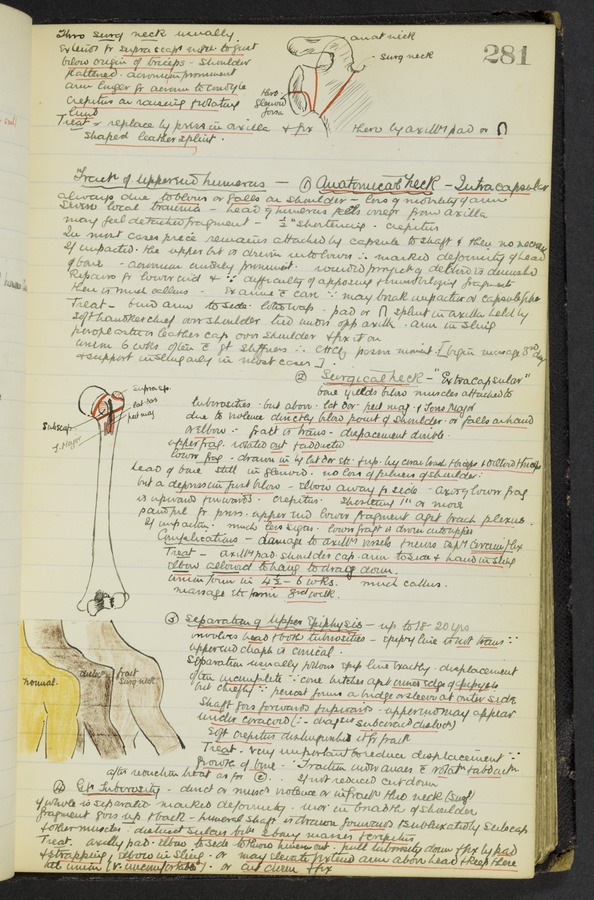 Thro surg neck usually
281
anat neck
surg neck
exterior to supra scap notch to just
below origin of triceps - shoulder
flattened. acromion prominent
arm longer fr acrom to condyle
crepitus on raising & rotating
limb
Thro glenoid fossa
Treat - replace by press in axilla & fix them by axillary pad or
shaped leather splint.
Fract of upper end humerus - ① Anatomical Neck - Intracapsular
always due to blows or falls on shoulder - loss of mobility of arm
Severe local trauma - head of humerus felt from axilla
may feel detached fragment - ½" shortening. crepitus
In most cases piece remains attached by capsule to shaft & then no
If impacted the upper bit is driven into lower ∴ marked deformity of head
of bone - acromion unduly prominent.
Repairs fr lower end & ∵ difficulty of apposing & immobilizing fragments
there is much callus. Examine c care ∵ may break impaction or capsule
Treat - bind arm to side. pad or splint in axilla held by
soft handkerchief over shoulder tied under opp axilla. arm in sling
poroplastic or leather cap over shoulder & fix it on
union 6 wks often c gt stiffness ∴ passive movint. [begin massage 3rd day
& support in sling only in most cases]
② Surgical Neck - "Extracapsular"
bone yields below muscles attached to
Supra sp.
Subscap.
pect maj
T. Major
tuberosities - but above lat dor pect maj & Teres Major
due to violence directly below point of shoulder or falls on hand
or elbow. fract is trans - displacement double.
upper frag. rotated out & abducted
lower frag - drawn in by lat dor etc & up by corac brach & biceps & deltoid & triceps
head of bone still in glenoid. no loss of fulness of shoulder.
but a depression just below - elbow away fr side - axis of lower frag
is upward & inwards. crepitus. shortening 1" or more
painful fr press. upper end lower fragment agst brach plexus.
If impaction. much less signs. lower fragt is driven into upper
Complications - damage to axill vessels & nerves esp circumflex
Treat - axill pad. shoulder cap. arm to side & hand in sling
elbow allowed to hang to drag down.
union form in 4½ - 6 wks. much callus.
massage etc from 3rd week.
③ Separation of Upper Epiphysis - up to 18-20 yrs
involves head & both tuberosities - epiphy line is not trans ∵
upper end diaph is conical.
Separation usually follows epip line exactly - displacement
often incomplete ∵ cone hitches agst inner edge of epiphysis
but chiefly ∵ periost forms a bridge or sleeve at outer side
Shaft goes forwards & upwards - upper end may appear
under coracoid (∴ diag subcoracd disloc)
Soft crepitus distinguishes it fr fract
Treat. very important to reduce displacement ∵
growth of bone - Traction under anaes c rotat & abduction
after reduction treat as for ②. If not reduced cut down
normal.
disloc
fract surg neck
④ Gt Tuberosity - direct or musc violence or in fract thro neck (surg)
If whole is separated marked deformity - incr in breadth of shoulder
fragment goes up & back - humeral shaft is drawn forwards & subluxated by subscap
& other muscles. distinct sulcus betw 2 bony masses & crepitus
Treat. axilly pad. elbow to side to throw hum out. pull tuberosity down & fix by pad
& strapping, elbow in sling. or may elevate & extend arm above head & keep there
till union (v. uncomfortable). or cut down & fix